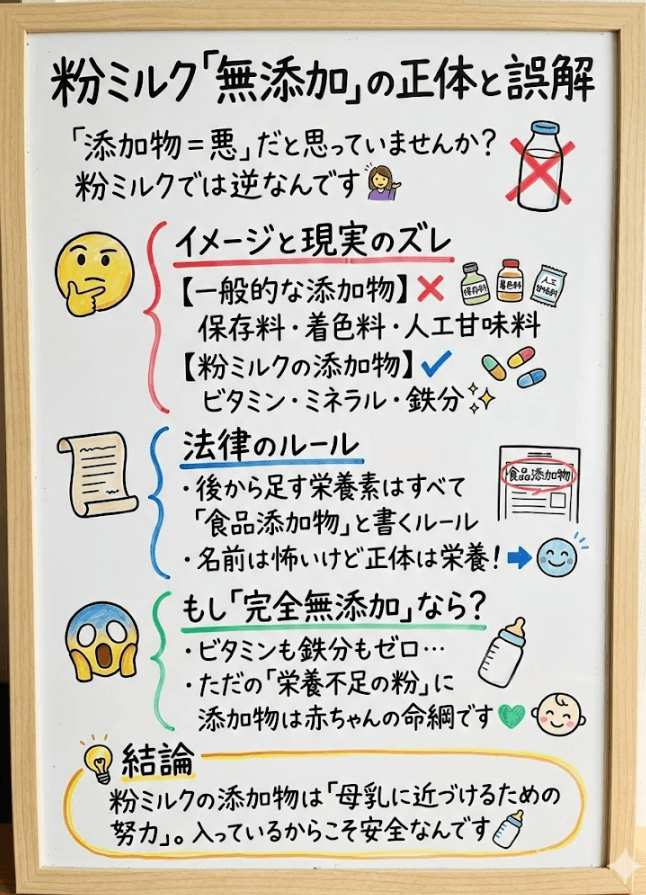 粉ミルク「無添加」の正体と誤解
「添加物=悪」だと思っていませんか?
粉ミルクでは逆なんです
イメージと現実のズレ
【一般的な添加物】
保存料
着色料
人工
甘味料
保存料・着色料・人工甘味料
【粉ミルクの添加物】
ビタミン・ミネラル・鉄分
法律のルール
・後から足す栄養素はすべて
「食品添加物」と書くルール
食品添加物
・名前は怖いけど正体は栄養!
もし「完全無添加」なら?
・ビタミンも鉄分もゼロ…
・ただの「栄養不足の粉」に
添加物は赤ちゃんの命綱です
結論
粉ミルクの添加物は「母乳に近づけるための
努力」。入っているからこそ安全なんです